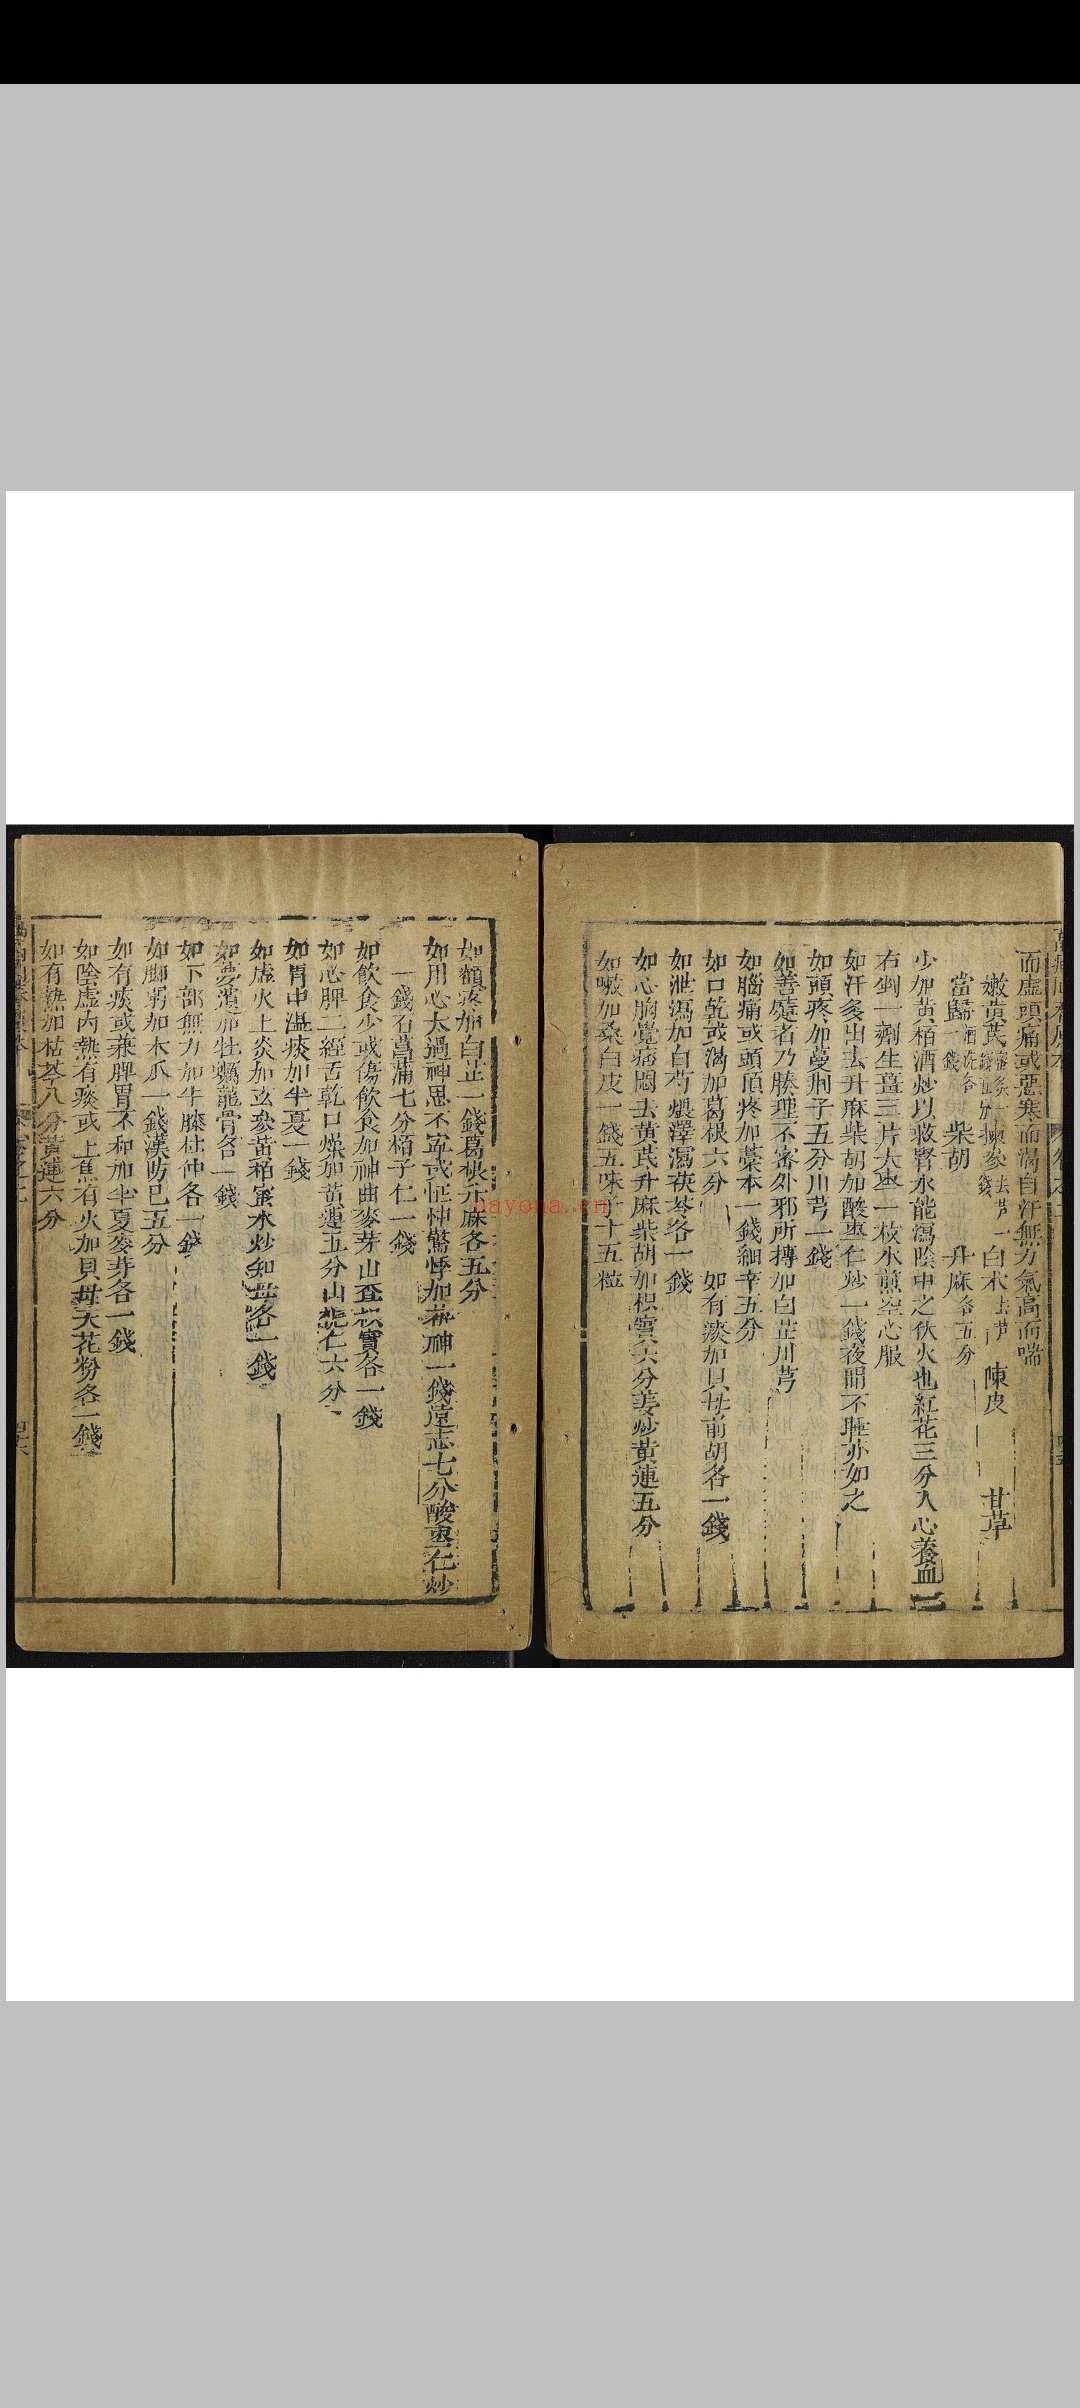 而虛頭痛或惡寒而渴自汗無力氣高而喘
嫩黃芪蜜炙 人參去芦 白朮去芦 陳皮 甘草
當歸酒洗各一錢 柴胡 升麻各五分
少加黃栢酒炒以救腎水能瀉陰中之伏火也紅花三分入心養血
右剉一劑生薑三片大棗一枚水煎空心服
如汗多出去升麻柴胡加酸棗仁炒一錢夜間不睡亦如之
如頭疼加蔓荆子五分川芎一錢
如善嚏者乃腠理不密外邪所搏加白芷川芎
如腦痛或頭頂疼加藁本一錢細辛五分
如口乾或渴加葛根六分 如有痰加貝母前胡各一錢
如泄瀉加白芍煨澤瀉茯苓各一錢
如心胸覺痞悶去黃芪升麻柴胡加枳實六分姜炒黃連五分
如嗽加桑白皮一錢五味子十五粒
如額疼加白芷一錢葛根升麻各五分
如用心太過神思不寧或怔忡驚悸加茯神一錢遠志七分酸棗仁炒
一錢石菖蒲七分栢子仁一錢
如飲食少或傷飲食加神曲麥芽山查枳實各一錢
如心脾二經舌乾口燥加黃連五分山梔仁六分
如胃中濕痰加半夏一錢
如虛火上炎加玄參黃栢蜜水炒知母各一錢
如夢遺加牡蠣龍骨各一錢
如下部無力加牛膝杜仲各一錢
如脚弱加木瓜一錢漢防巳五分
如有痰或兼脾胃不和加半夏麥芽各一錢
如陰虛內熱有痰或上焦有火加貝母天花粉各一錢
如有熱加枯芩八分黃連六分
nayona.cn